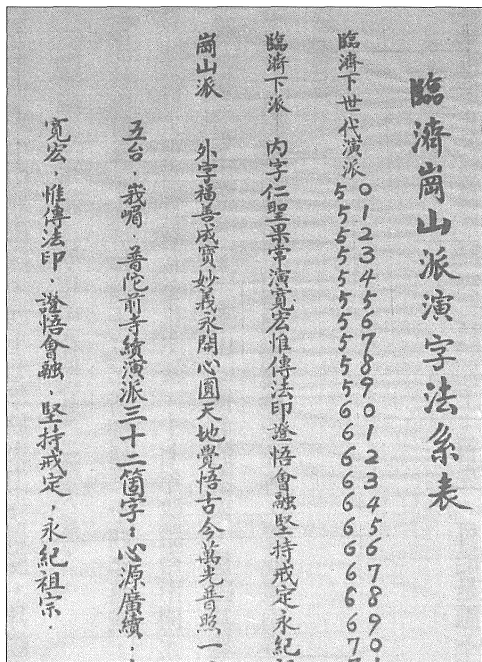 臨濟崗山派演字法系表
臨濟下世代演派 50 51 52 53 54 55 56 57 58 59 60 61 62 63 64 65 66 67 68 69 70
臨濟下派 內字仁聖果常演寬宏惟傳法印證悟會融堅持戒定永紀
崗山派 外字福善成寶妙義永開心圓天地覺悟古今萬光普照一
五台,峩嵋,普陀前寺續演派三十二箇字:心源廣續,
寬宏,惟傳法印,證悟會融,堅持戒定,永紀祖宗.